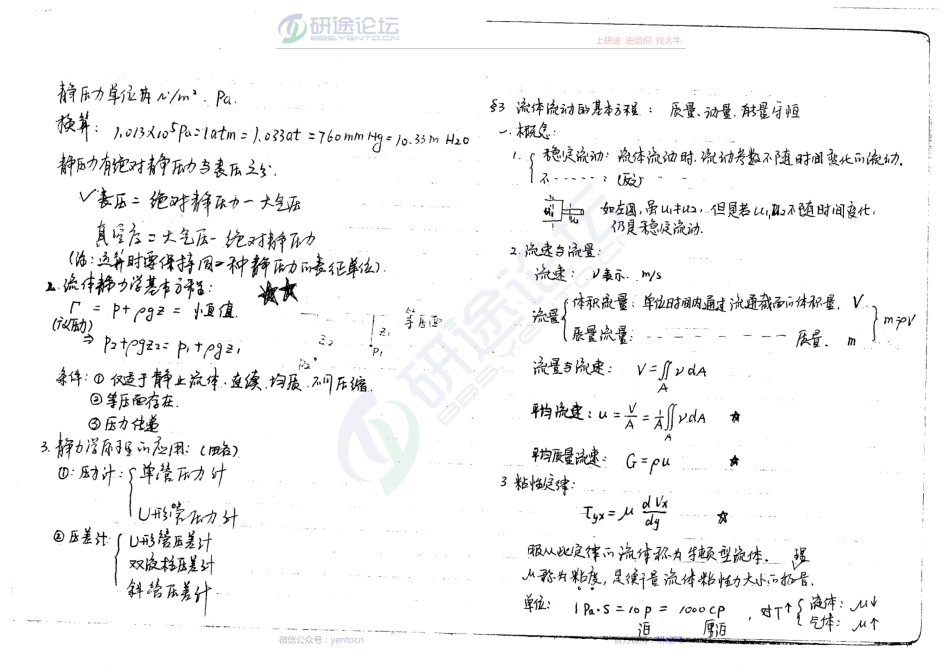 研途论坛
BBS.YENTO.CN
静压力单位为 N/m². Pa.
换算: 1.013×10⁵Pa=1atm=1.033at=760mmHg=10.33m H₂O
静压力有绝对静压力与表压之分.
√表压 = 绝对静压力 - 大气压
真空度 = 大气压 - 绝对静压力
(注:运算时要保持同一种静压力的表征单位).
2. 流体静力学基本方程: ☆☆
Γ = p+ρgz = 恒值.
⇒ p₂+ρgz₂ = p₁+ρgz₁
z₂ z₁ 等压面
p₂ p₁
条件: ① 仅适于静止流体、连续、均质、不可压缩.
② 等压面存在.
③ 压力传递
3. 静力学原理的应用:
①: 压力计: { 单管压力计
U形管压力计
② 压差计 { U形管压差计
双液柱压差计
斜管压差计.
微信公众号:yentocn
上研途 进组织 找大牛
§3 流体流动的基本方程: 质量、动量、能量守恒
一. 概念:
1. { 稳定流动: 流体流动时,流动参数不随时间变化的流动.
不 - - - - - : (反之) - -
如左图,虽u₁≠u₂, 但是若u₁,u₂不随时间变化,
仍是稳定流动.
2. 流速与流量:
流速: v表示. m/s
流量 { 体积流量: 单位时间内通过流通截面的体积量. V
质量流量: - - - - - - - 质量. m } m=ρV
流量与流速: V=∬_A v dA
平均流速: u = V/A = 1/A ∬_A v dA ☆
平均质量流速: G=ρu ☆
3. 粘性定律:
τyx = μ dVx/dy ☆
服从此定律的流体称为牛顿型流体.
μ称为粘度, 是衡量流体粘性力大小的物理量.
单位: 1Pa·S = 10P = 1000CP , 对T↑ { 液体: μ↓
泊 厘泊 气体: μ↑